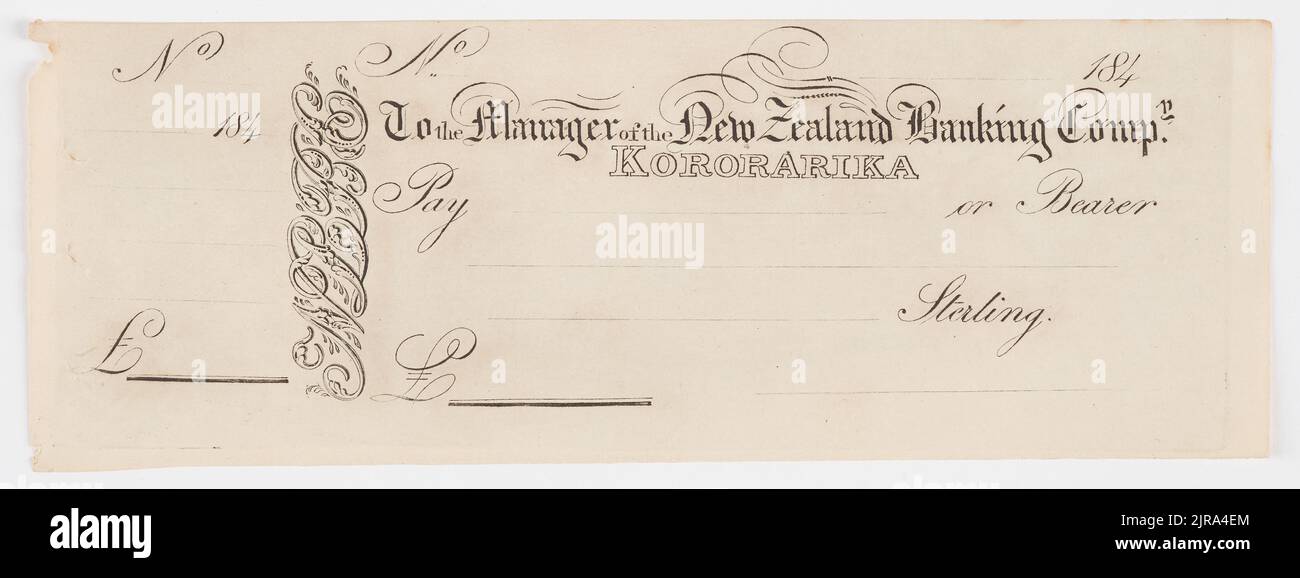 No
184
£
NZBC
No.
184
To the Manager of the New Zealand Banking Compy.
KORORARIKA
Pay or Bearer
Sterling.
£
alamy
alamy
a
a
a
a
alamy
Image ID: 2JRA4EM
www.alamy.com